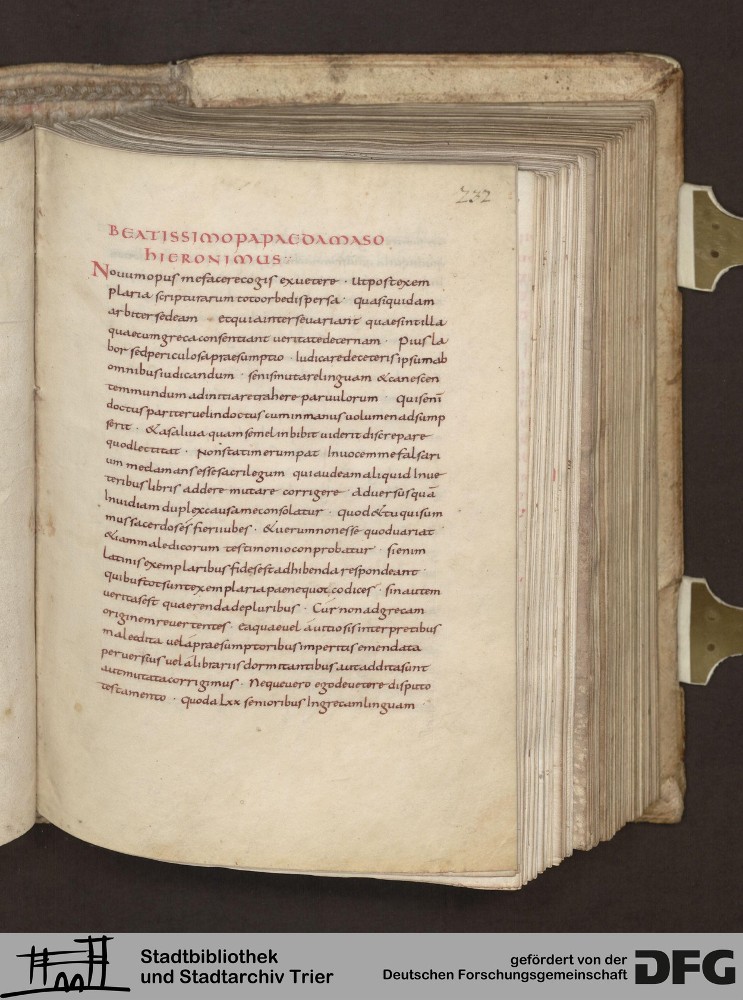 232
BEATISSIMOPAPAEDAMASO
hIERONIMUS
Nouumopus mefacerecogis exuetere · Utpostexem
plaria scripturarum totoorbedispersa · quasiquidam
arbitersedeam etquiaintersevariant quaesintilla
quaecumgrecaconsentiant veritatedecernam · Piusla
bor sedpericulosapraesumptio · Iudicaredeceterisipsumab
omnibusiudicandum · senismutarelinguam &canescen
temmundum adinitiaretrahere paruulorum · Quisenī
doctuspariteruelindoctus cuminmanusuolumenadsump
serit · &asaliua quamsemelinbibit uiderit discrepare
quodlectitat · Nonstatimerumpat Inuocemmefalsari
um meclamansessesacrilegum quiaudeamaliquid Inue
teribuslibris addere mutare corrigere Aduersusquā
Inuidiam duplexcausameconsolatur · quod&tuquisum
mussacerdosesfieriiubes · &uerumnonesse quoduariat
&iammaledicorum testimonioconprobatur · sienim
Latinisexemplaribusfidesestadhibenda respondeant
quibustotsuntexemplariapaenequot codices · sinautem
veritasest quaerendadepluribus · Cur nonadgrecam
originemreuertentes · eaquaeuel auitiosisinterpretibus
maleedita uelapraesumptoribusimperitis emendata
peruersius uel alibrariisdormitantibus autadditasunt
autmutatacorrigimus · Nequeuero egodeuetere disputo
testamento · Quoda Lxx senioribus Ingrecamlinguam
Stadtbibliothek
und Stadtarchiv Trier
gefördert von der
Deutschen Forschungsgemeinschaft
DFG